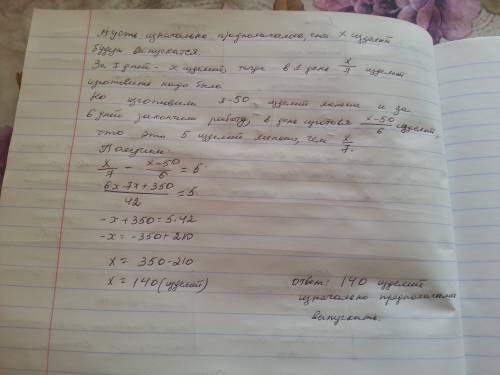 Пусть изначально предполагалось, что x изделий
будут выпускаться.
За 7 дней - x изделий, тогда в 1 день x/7 изделий
изготовить надо было.
Но изготовили x-50 изделий и за
6 дней закончили работу, в день изготовя x-50/6 изделий,
что это 5 изделий меньше, чем x/7.
Получим:
x/7 - x-50/6 = 5
6x-7x+350/42 = 5
-x+350=5·42
-x=-350+210
x = 350-210
x = 140 (изделий)
Ответ: 140 изделий
изначально предполагали
выпускать.